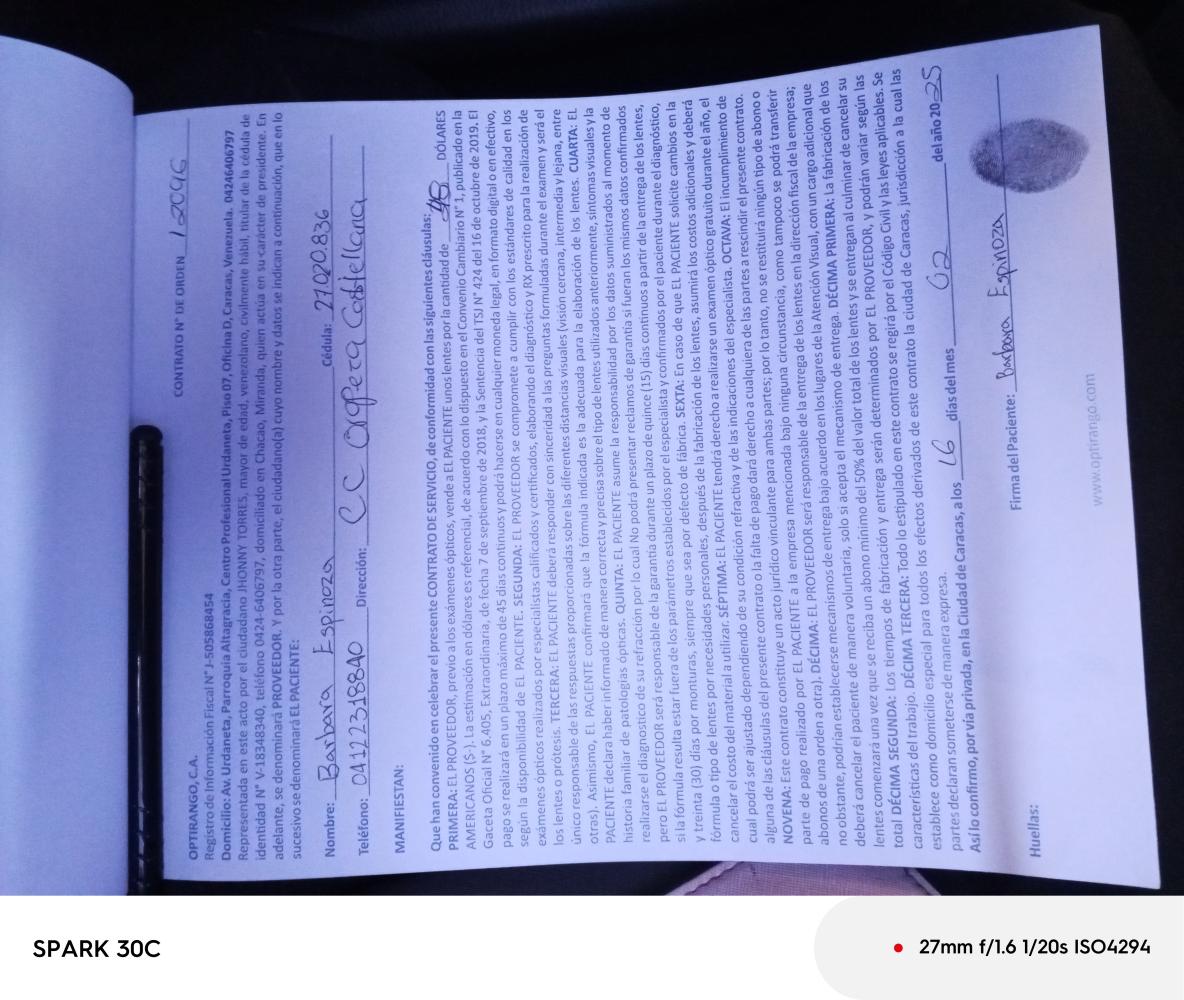 CONTRATO N° DE ORDEN 12096
OPTIRANGO, C.A.
Registro de Información Fiscal N° J-505868454
Domicilio: Av. Urdaneta, Parroquia Altagracia, Centro Profesional Urdaneta, Piso 07, Oficina D, Caracas, Venezuela. 04246406797
Representada en este acto por el ciudadano JHONNY TORRES, mayor de edad, venezolano, civilmente hábil, titular de la cédula de
identidad N° V-18348340, teléfono 0424-6406797, domiciliado en Chacao, Miranda, quien actúa en su carácter de presidente. En
adelante, se denominará PROVEEDOR. Y por la otra parte, el ciudadano(a) cuyo nombre y datos se indican a continuación, que en lo
sucesivo se denominará EL PACIENTE:
Nombre: Barbara Espinoza Cédula: 27.020.836
Teléfono: 04122318840 Dirección: CC Opera Castellana
MANIFIESTAN:
Que han convenido en celebrar el presente CONTRATO DE SERVICIO, de conformidad con las siguientes cláusulas:
PRIMERA: EL PROVEEDOR, previo a los exámenes ópticos, vende a EL PACIENTE unos lentes por la cantidad de DÓLARES
AMERICANOS ($-). La estimación en dólares es referencial, de acuerdo con lo dispuesto en el Convenio Cambiario N° 1, publicado en la
Gaceta Oficial N° 6,405, Extraordinaria, de fecha 7 de septiembre de 2018, y la Sentencia del TSJ N° 424 del 16 de octubre de 2019. El
pago se realizará en un plazo máximo de 45 días continuos y podrá hacerse en cualquier moneda legal, en formato digital o en efectivo,
según la disponibilidad de EL PACIENTE. SEGUNDA: EL PROVEEDOR se compromete a cumplir con los estándares de calidad en los
exámenes ópticos realizados por especialistas calificados y certificados, elaborando el diagnóstico y RX prescrito para la realización de
los lentes o prótesis. TERCERA: EL PACIENTE deberá responder con sinceridad a las preguntas formuladas durante el examen y será el
único responsable de las respuestas proporcionadas sobre las diferentes distancias visuales (visión cercana, intermedia y lejana, entre
otras). Asimismo, EL PACIENTE confirmará que la fórmula indicada es la adecuada para la elaboración de los lentes. CUARTA: EL
PACIENTE declara haber informado de manera correcta y precisa sobre el tipo de lentes utilizados anteriormente, síntomas visuales y la
historia familiar de patologías ópticas. QUINTA: EL PACIENTE asume la responsabilidad por los datos suministrados al momento de
realizarse el diagnostico de su refracción por lo cual No podrá presentar reclamos de garantía si fueran los mismos datos confirmados
pero EL PROVEEDOR será responsable de la garantía durante un plazo de quince (15) días continuos a partir de la entrega de los lentes,
si la fórmula resulta estar fuera de los parámetros establecidos por el especialista y confirmados por el paciente durante el diagnóstico,
y treinta (30) días por monturas, siempre que sea por defecto de fábrica. SEXTA: En caso de que EL PACIENTE solicite cambios en la
fórmula o tipo de lentes por necesidades personales, después de la fabricación de los lentes, asumirá los costos adicionales y deberá
cancelar el costo del material a utilizar. SÉPTIMA: EL PACIENTE tendrá derecho a realizarse un examen óptico gratuito durante el año, el
cual podrá ser ajustado dependiendo de su condición refractiva y de las indicaciones del especialista. OCTAVA: El incumplimiento de
alguna de las cláusulas del presente contrato o la falta de pago dará derecho a cualquiera de las partes a rescindir el presente contrato.
NOVENA: Este contrato constituye un acto jurídico vinculante para ambas partes; por lo tanto, no se restituirá ningún tipo de abono o
parte de pago realizado por EL PACIENTE a la empresa mencionada bajo ninguna circunstancia, como tampoco se podrá transferir
abonos de una orden a otra). DÉCIMA: EL PROVEEDOR será responsable de la entrega de los lentes en la dirección fiscal de la empresa;
no obstante, podrían establecerse mecanismos de entrega bajo acuerdo en los lugares de la Atención Visual, con un cargo adicional que
deberá cancelar el paciente de manera voluntaria, solo si acepta el mecanismo de entrega. DÉCIMA PRIMERA: La fabricación de los
lentes comenzará una vez que se reciba un abono mínimo del 50% del valor total de los lentes y se entregan al culminar de cancelar su
total DÉCIMA SEGUNDA: Los tiempos de fabricación y entrega serán determinados por EL PROVEEDOR, y podrán variar según las
características del trabajo. DÉCIMA TERCERA: Todo lo estipulado en este contrato se regirá por el Código Civil y las leyes aplicables. Se
establece como domicilio especial para todos los efectos derivados de este contrato la ciudad de Caracas, jurisdicción a la cual las
partes declaran someterse de manera expresa.
Así lo confirmo, por vía privada, en la Ciudad de Caracas, a los 16 días del mes 02 del año 2025
Firma del Paciente: Barbara Espinoza
Huellas:
www.optirango.com
SPARK 30C
27mm f/1.6 1/20s ISO4294